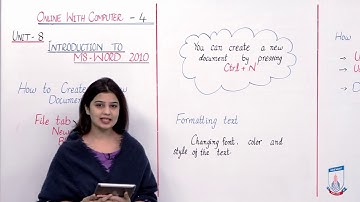 ONLINE WITH COMPUTER - 4
UNIT - 8
INTRODUCTION TO
MS-WORD 2010
How to Create
Docum
File tab
New
You can create a new
document by pressing
Ctrl + N
Formatting text
Changing font, color and
style of the text